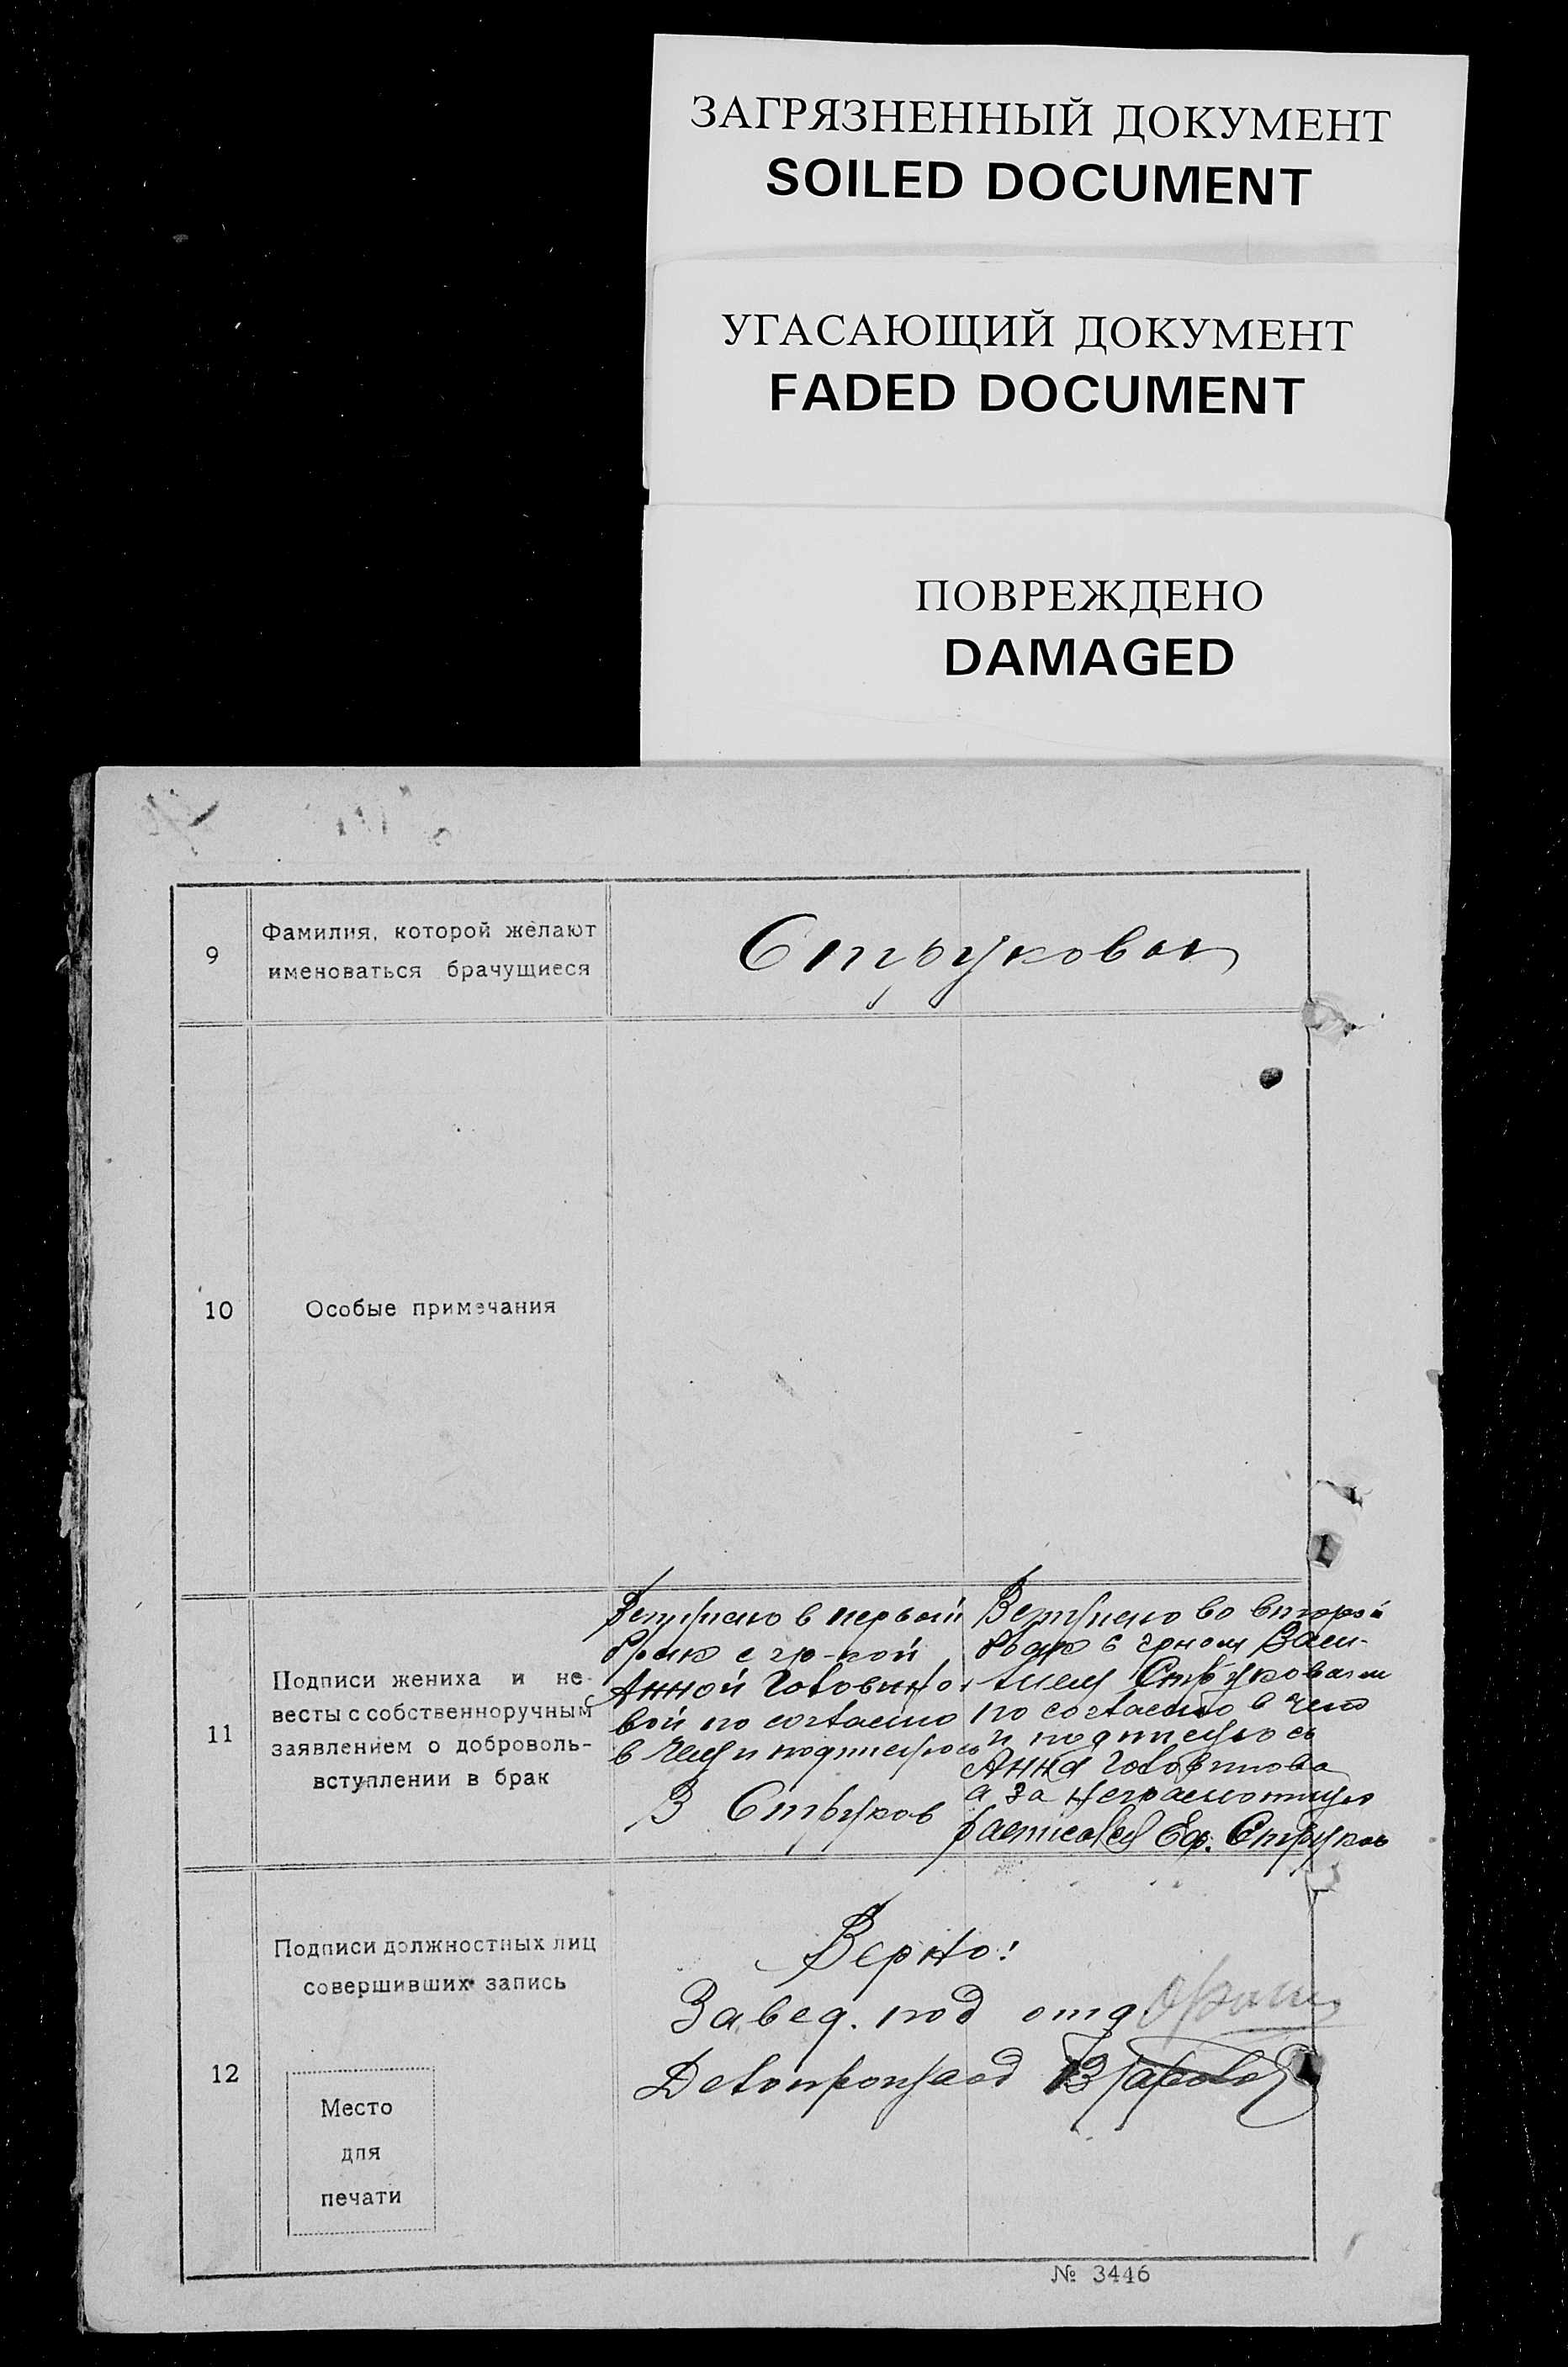 ЗАГРЯЗНЕННЫЙ ДОКУМЕНТ
SOILED DOCUMENT
УГАСАЮЩИЙ ДОКУМЕНТ
FADED DOCUMENT
ПОВРЕЖДЕНО
DAMAGED
9
Фамилия, которой желают
именоваться брачущиеся
Струковы
10
Особые примечания
11
Подписи жениха и не-
весты с собственноручным
заявлением о доброволь-
вступлении в брак
Вступаю в первый
брак с гр-кой
Анной Головино-
вой по согласию
в чем и подписуюсь
В Струков
Вступаю во второй
брак с грном Васи-
лием Струковым
по согласию в чем
и подписуюсь
Анна Головинова
а за неграмотную
расписался Еф. Струков
12
Подписи должностных лиц
совершивших запись
Место
для
печати
Верно:
Завед. под отд.
Делопроизвод
№ 3446